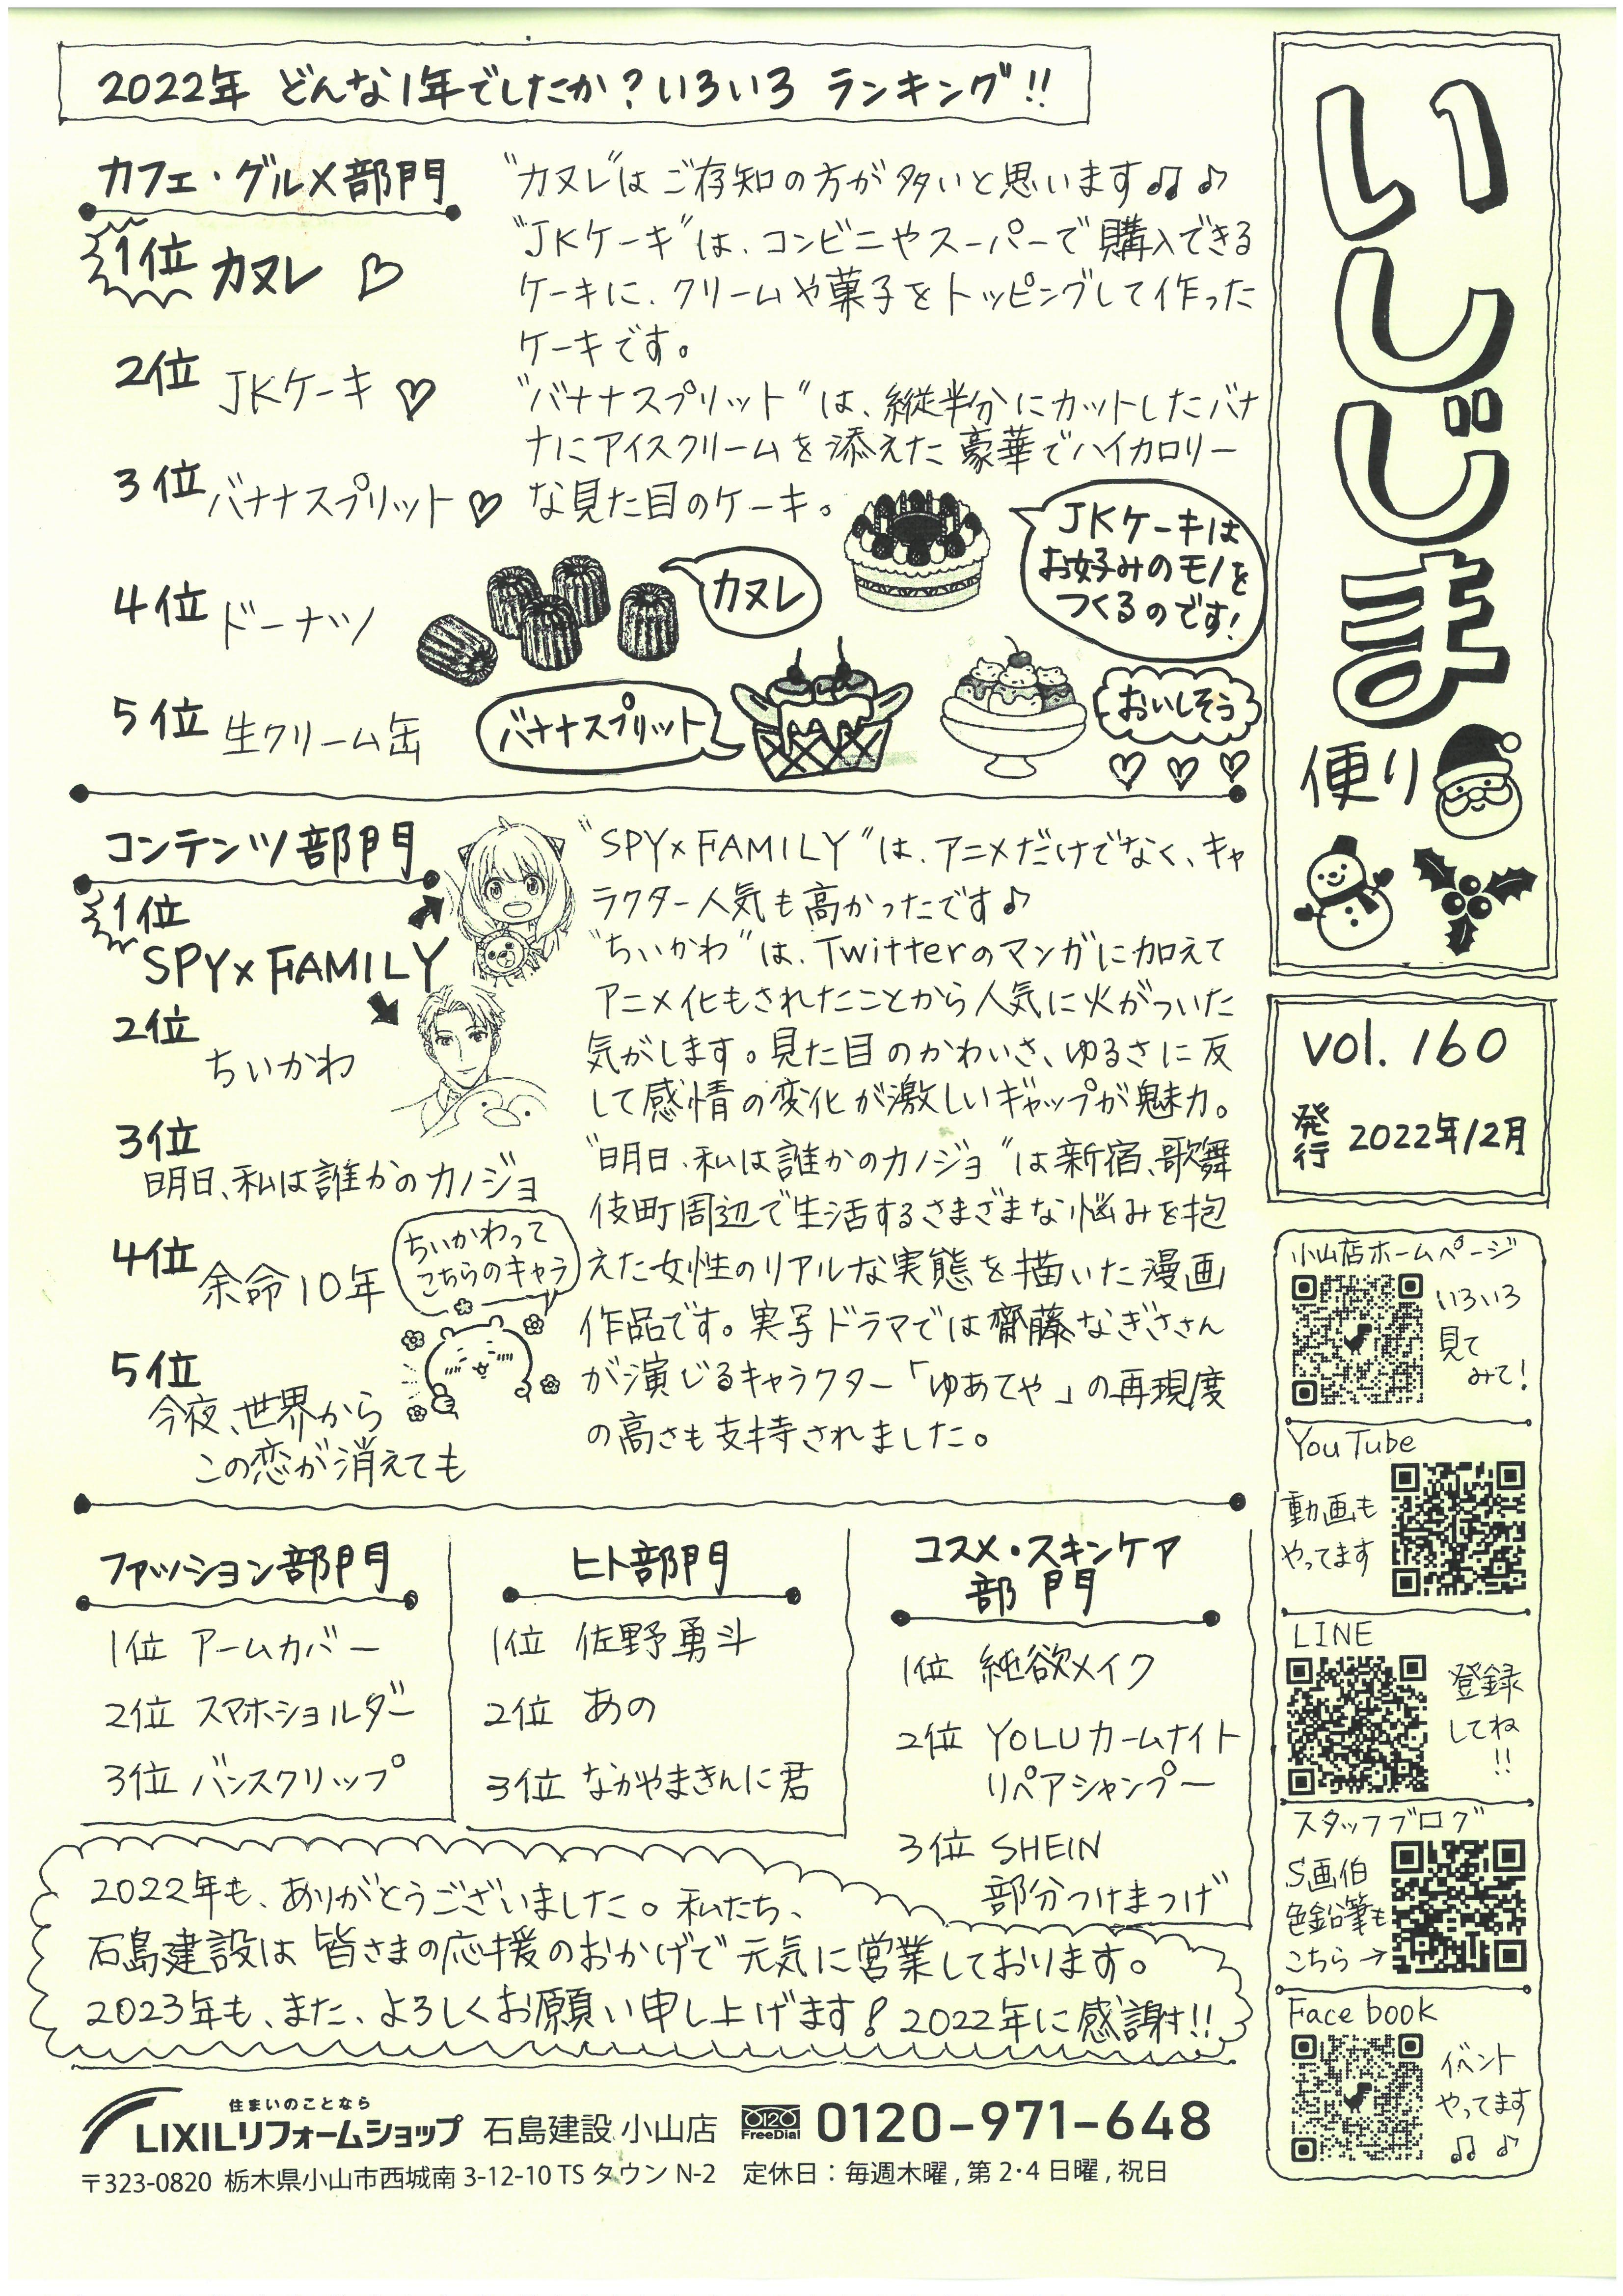 2022年 どんな1年でしたか?いろいろ ランキング!!
カフェ・グルメ部門
1位 カヌレ
2位 JKケーキ
3位 バナナスプリット
4位 ドーナツ
5位 生クリーム缶
"カヌレ"はご存知の方が多いと思います♫♪
"JKケーキ"は、コンビニやスーパーで購入できる
ケーキに、クリームや菓子をトッピングして作った
ケーキです。
"バナナスプリット"は、縦半分にカットしたバナ
ナにアイスクリームを添えた豪華でハイカロリー
な見た目のケーキ。
カヌレ
JKケーキは
お好みのモノを
つくるのです!
バナナスプリット
おいしそう
コンテンツ部門
1位
SPY×FAMILY
2位
ちいかわ
3位
明日、私は誰かのカノジョ
4位 余命10年
5位
今夜、世界から
この恋が消えても
ちいかわって
こちらのキャラ
"SPY×FAMILY"は、アニメだけでなく、キャ
ラクター人気も高かったです♪
"ちいかわ"は、Twitterのマンガに加えて
アニメ化もされたことから人気に火がついた
気がします。見た目のかわいさ、ゆるさに反
して感情の変化が激しいギャップが魅力。
"明日、私は誰かのカノジョ"は新宿、歌舞
伎町周辺で生活するさまざまな悩みを抱
えた女性のリアルな実態を描いた漫画
作品です。実写ドラマでは齋藤なぎささん
が演じるキャラクター「ゆあてゃ」の再現度
の高さも支持されました。
ファッション部門
1位 アームカバー
2位 スマホショルダー
3位 バンスクリップ
ヒト部門
1位 佐野勇斗
2位 あの
3位 なかやまきんに君
コスメ・スキンケア
部門
1位 純欲メイク
2位 YOLUカームナイト
リペアシャンプー
3位 SHEIN
部分つけまつげ
2022年も、ありがとうございました。私たち、
石島建設は皆さまの応援のおかげで元気に営業しております。
2023年も、また、よろしくお願い申し上げます!2022年に感謝!!
住まいのことなら
LIXILリフォームショップ 石島建設 小山店 0120 FreeDial 0120-971-648
〒323-0820 栃木県小山市西城南3-12-10 TSタウンN-2 定休日:毎週木曜,第2・4日曜,祝日
いしじま
便り
vol.160
発行 2022年12月
小山店ホームページ
いろいろ
見て
みて!
YouTube
動画も
やってます
LINE
登録
してね
!!
スタッフブログ
S画伯
色鉛筆も
こちら→
Facebook
イベント
やってます
♫ ♪